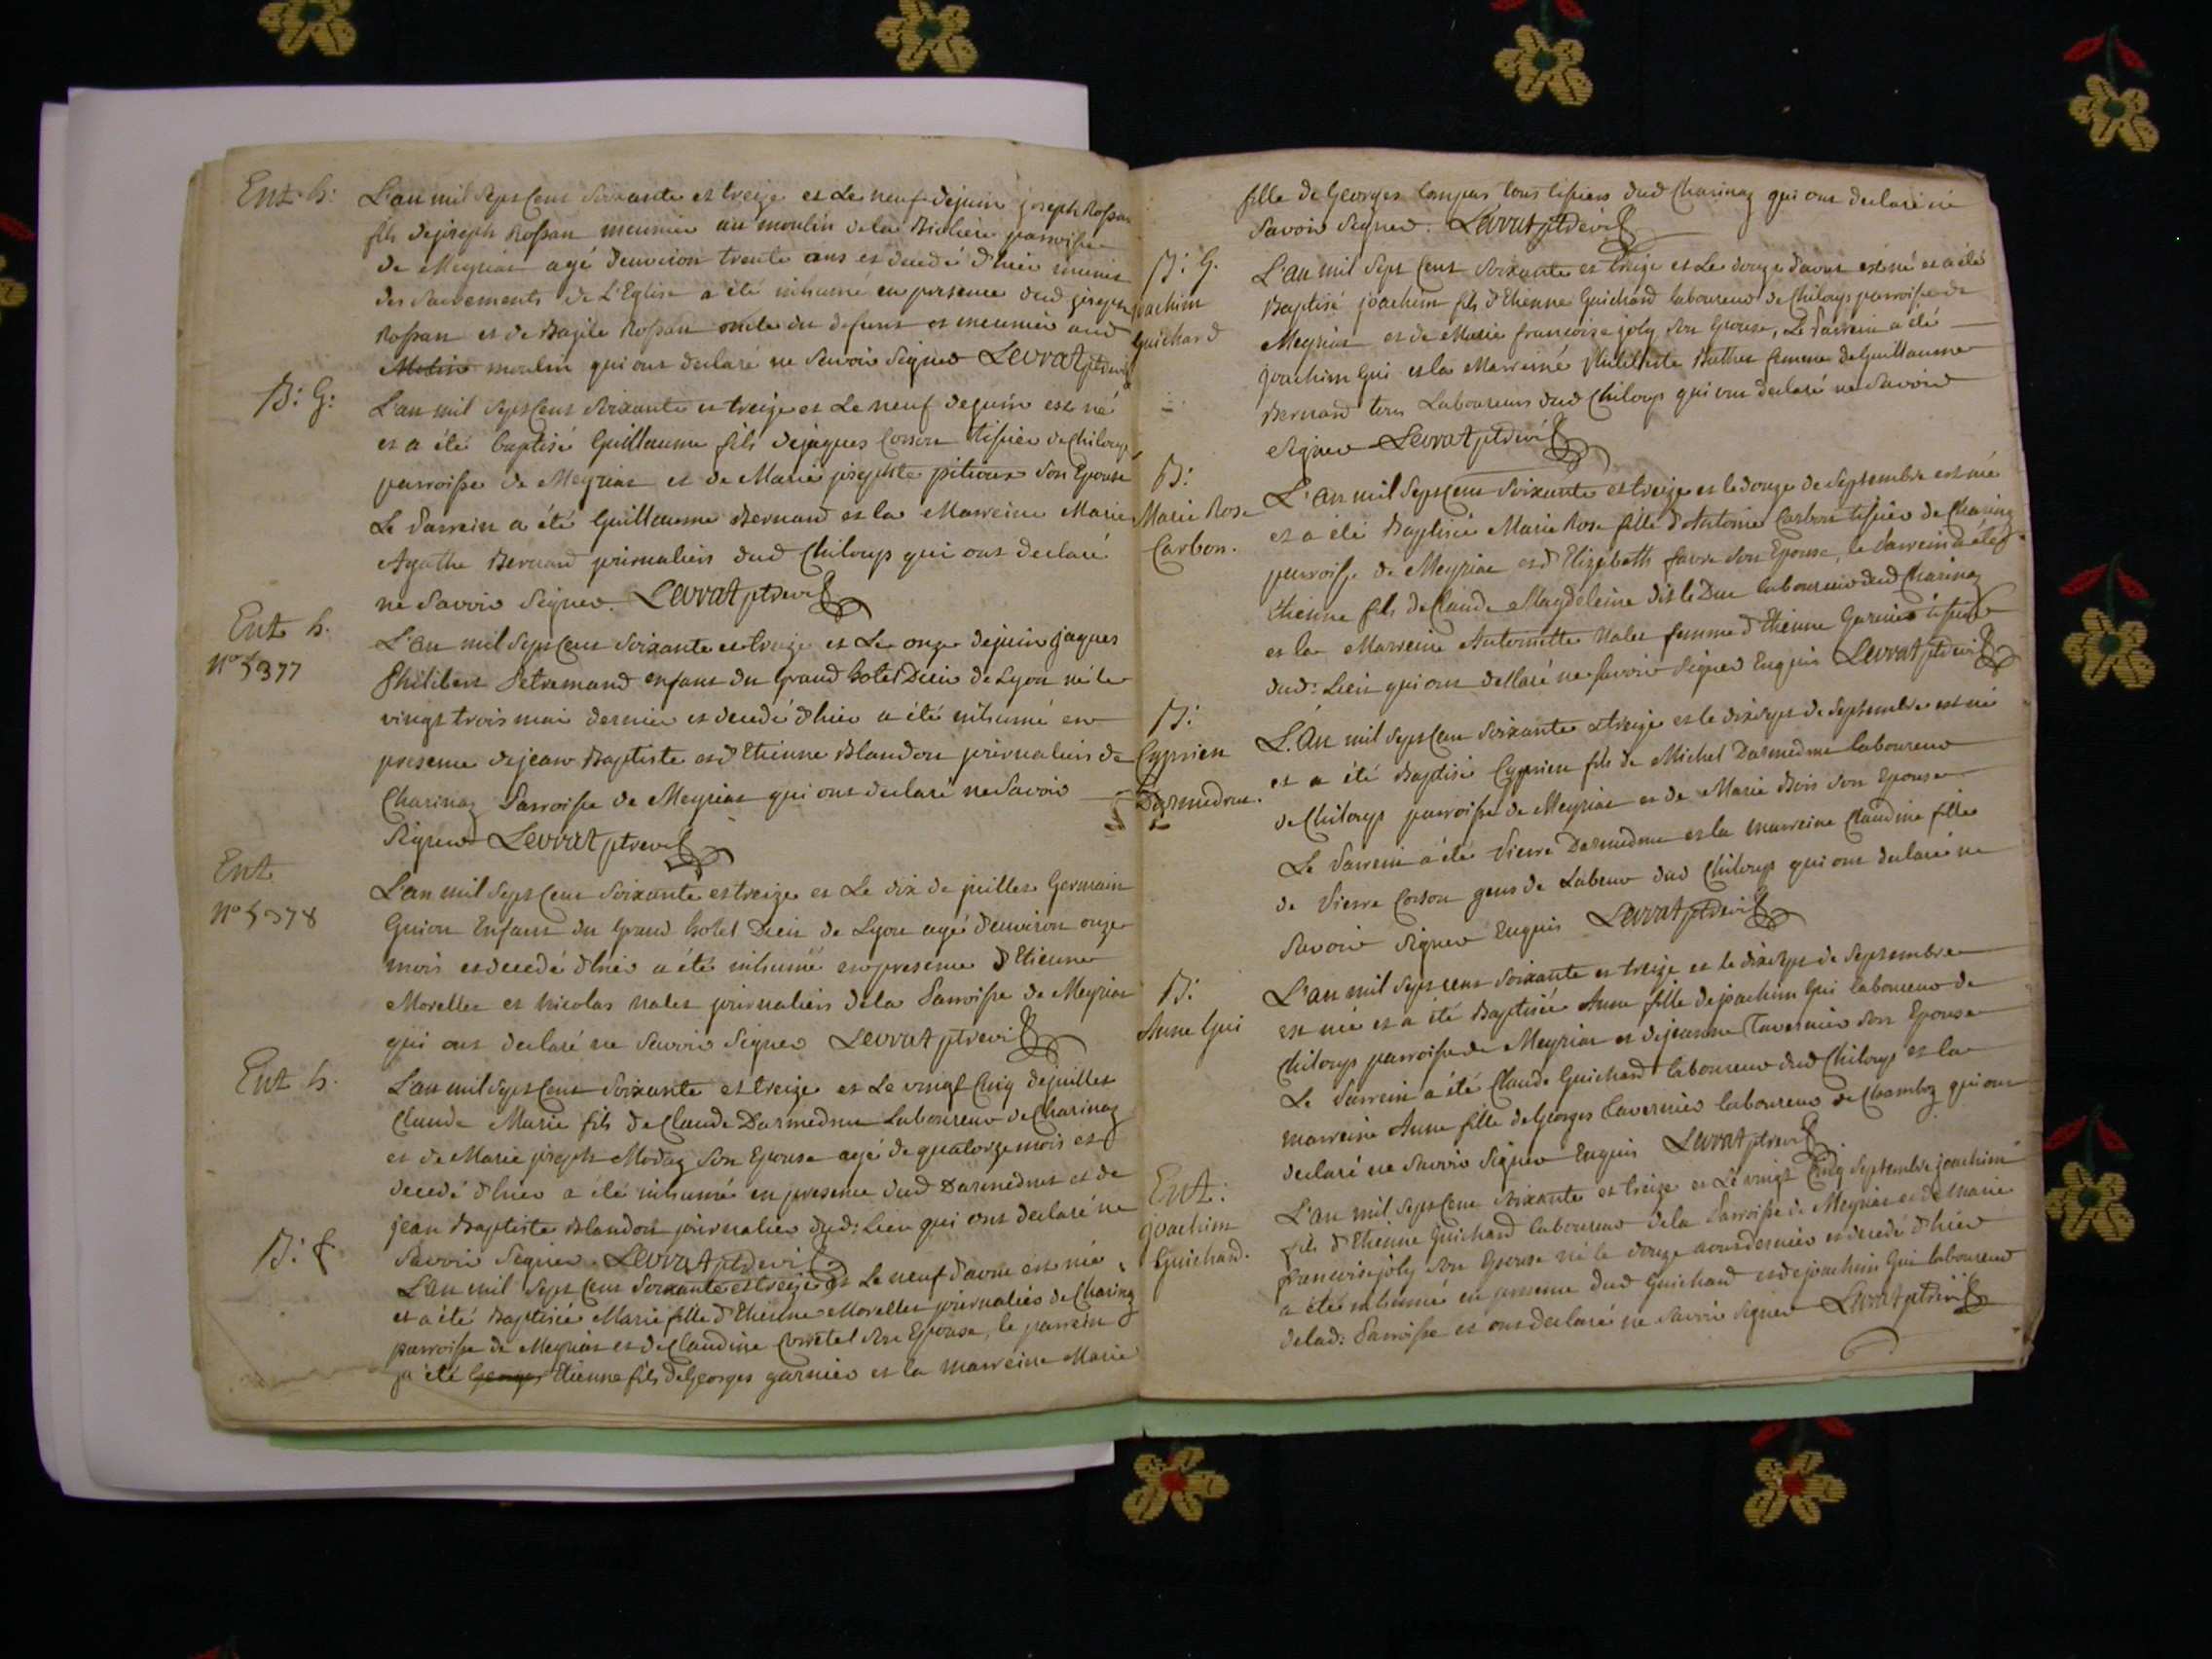 Ent. h:
L'an mil sept cent soixante et treize et Le neuf de juin joseph Rossan
fils de joseph Rossan meunier au moulin de la parroisse
de Meyriat agé d'environ trente ans et decedé d'hier munis
des sacrements de L'Eglise a été inhumé en presence dud joseph
Rossan et de Bazile Rossan oncle du defunt et meunier aud
moulin qui ont declaré ne savoir signer Levrat ptre vic
B: G:
L'an mil sept cent soixante et treize et Le neuf de juin est né
et a été baptisé Guillaume fils de jaques Corson tissier de Chiloup
parroisse de Meyriat et de Marie josephte pitioux son Epouse
Le Parrein a été Guillaume Bernard et la Marreine Marie
Agathe Bernard journaliers dud Chiloup qui ont declaré
ne savoir signer. Levrat ptre vic
Ent h.
No 5377
L'an mil sept cent soixante et treize et Le onze de juin jaques
Philibert Petremand enfant du Grand hotel Dieu de Lyon né le
vingt trois mai dernier et decedé d'hier a été inhumé en
presence de jean Baptiste et d'Etienne Blandon journaliers de
Charinaz Parroisse de Meyriat qui ont declaré ne savoir
signer Levrat ptre vic
Ent
No 5378
L'an mil sept cent soixante et treize et Le dix de juillet Germain
Guion Enfant du Grand hotel Dieu de Lyon agé d'environ onze
mois et decedé d'hier a été inhumé en presence d'Etienne
Morellet et Nicolas Nalet journaliers de la Parroisse de Meyriat
qui ont declaré ne savoir signer Levrat ptre vic
Ent h.
L'an mil sept cent soixante et treize et Le vingt Cinq de juillet
Claude Marie fils de Claude Darmedru Laboureur de Charinaz
et de Marie joseph Modaz son Epouse agé de quatorze mois et
decedé d'hier a été inhumé en presence dud Darmedru et de
jean Baptiste Blandon journalier dud: Lieu qui ont declaré ne
savoir signer. Levrat ptre vic
B: f.
L'an mil sept cent soixante et treize et Le neuf d'aout est née
et a été Baptisée Marie fille d'Etienne Morellet journalier de Charinaz
parroisse de Meyriat et de Claudine Convetel son Epouse, le parrein
a été Georges Etienne fils de Georges garnier et la marreine Marie
fille de Georges Compas tous tissiers dud Charinaz qui ont declaré ne
savoir signer. Levrat ptre vic
B: G.
joachim
Guichard
L'an mil sept cent soixante et treize et Le douze d'aout est né et a été
Baptisé joachim fils d'Etienne Guichard laboureur de Chiloup parroisse de
Meyriat et de Marie francoise joly son Epouse, Le Parrein a été
joachim Gui et la Marreine Philiberte Buthet femme de Guillaume
Bernard tous Laboureurs dud Chiloup qui ont declaré ne savoir
signer Levrat ptre vic
B:
Marie Rose
Carbon.
L'an mil sept cent soixante et treize et le douze de septembre est née
et a été Baptisée Marie Rose fille d'Antoine Carbon tissier de Charinaz
parroisse de Meyriat et d'Elizabeth favre son Epouse, le Parrein a été
Etienne fils de Claude Magdeleine dit le Duc laboureur dud Charinaz
et la Marreine Antoinette Nalet femme d'Etienne Garnier tissier
dud: Lieu qui ont declaré ne savoir signer Enquis Levrat ptre vic
B:
Cyprien
Darmedru.
L'an mil sept cent soixante et treize et le dix sept de septembre est né
et a été Baptisé Cyprien fils de Michel Darmedru laboureur
de Chiloup parroisse de Meyriat et de Marie Bois son Epouse
Le Parrein a été Pierre Darmedru et la marreine Claudine fille
de Pierre Corson gens de Labeur dud Chiloup qui ont declaré ne
savoir signer Enquis Levrat ptre vic
B:
Anne Gui
L'an mil sept cent soixante et treize et le dix sept de septembre
est née et a été Baptisée Anne fille de joachim Gui laboureur de
Chiloup parroisse de Meyriat et de jeanne Tavernier son Epouse
Le Parrein a été Claude Guichard laboureur dud Chiloup et la
marreine Anne fille de Georges Tavernier laboureur de Chamboz qui ont
declaré ne savoir signer Enquis Levrat ptre vic
Ent:
joachim
Guichard.
L'an mil sept cent soixante et treize et Le vingt Cinq septembre joachim
fils d'Etienne Guichard laboureur de la Parroisse de Meyriat et de Marie
francoise joly son Epouse né le douze aout dernier et decedé d'hier
a été inhumé en presence dud Guichard et de joachim Gui laboureur
de lad: Parroisse et ont declaré ne savoir signer Levrat ptre vic